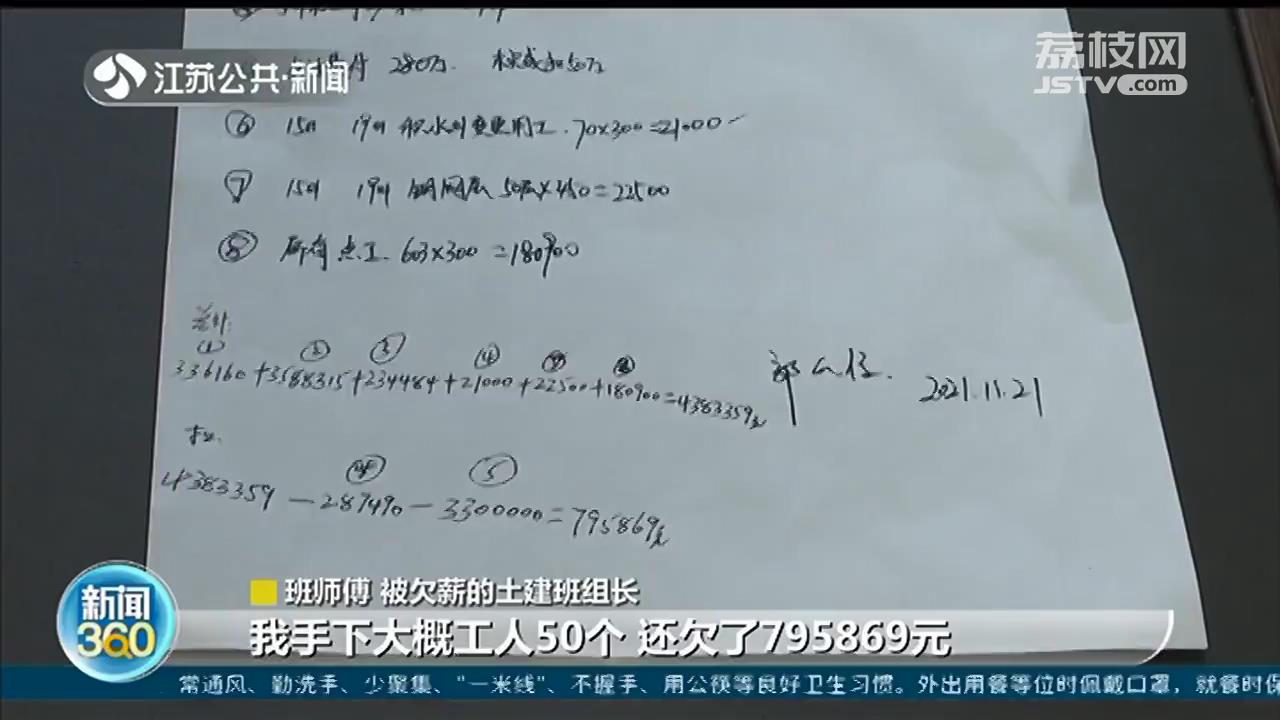 江苏公共·新闻
荔枝网
JSTV.com
280万.
⑥ 15# 19# 用工. 70×300=21000
⑦ 15# 19# 钢网 ×450=22500
⑧ 所有点工. 603×300=180900
总计:
① ② ③ ④ ⑦ ⑧
336160+3588315+234484+21000+22500+180900=4383359元
2021.11.21
④ ⑤
4383359-287490-3300000=795869元
班师傅 被欠薪的土建班组长
新闻
360
我手下大概工人50个 还欠了795869元
常通风、勤洗手、少聚集、"一米线"、不握手、用公筷等良好卫生习惯。外出用餐等位时佩戴口罩，就餐时保